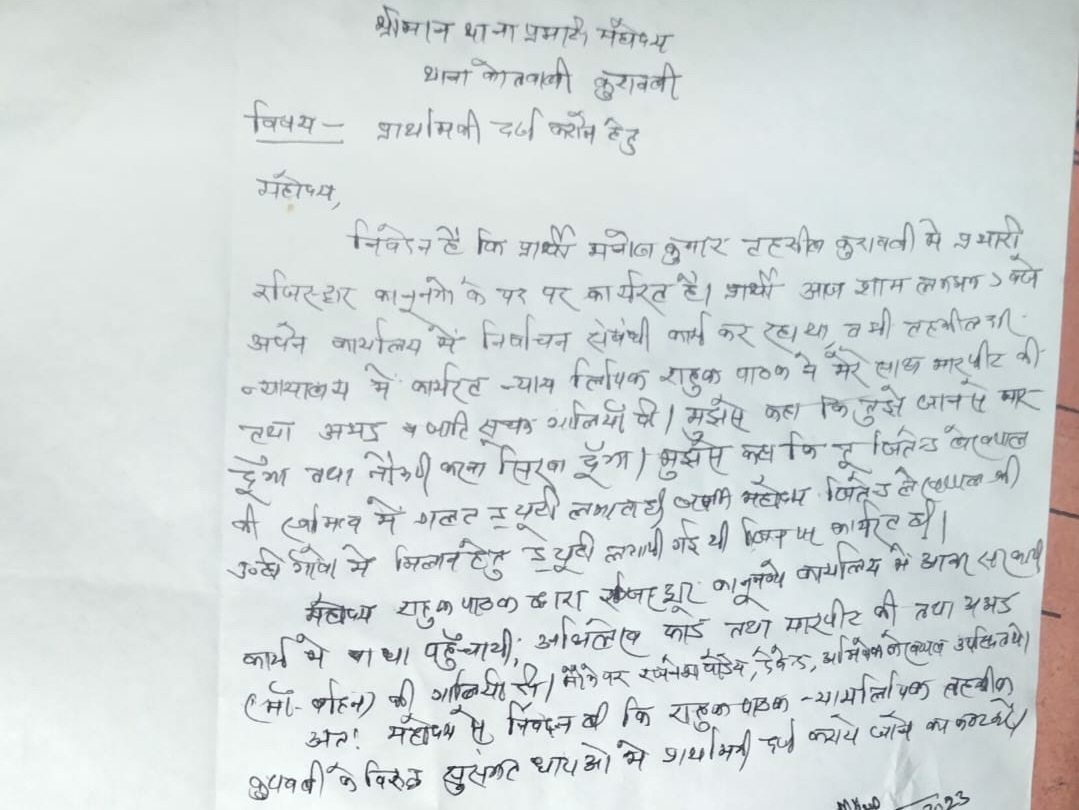 श्रीमान थाना प्रभारी महोदय
थाना कोतवाली कुरावली
विषय - प्राथमिकी दर्ज कराने हेतु
महोदय,
निवेदन है कि प्रार्थी मनोज कुमार तहसील कुरावली मे प्रभारी
रजिस्ट्रार कानूनगो के पद पर कार्यरत है। प्रार्थी आज शाम लगभग 5 बजे
अपने कार्यालय में निर्वाचन संबंधी कार्य कर रहा था, तभी तहसीलदार
न्यायालय में कार्यरत न्याय लिपिक राहुल पाठक ने मेरे साथ मारपीट की
तथा अभद्र व जाति सूचक गालियाँ दी। मुझसे कहा कि तुझे जान से मार
दूँगा तथा नौकरी करना सिखा दूँगा। मुझसे कहा कि तू जितेन्द्र लेखपाल
की गलत ड्यूटी लगाता है। जबकि महोदय जितेन्द्र लेखपाल की
उन्ही गाँवो मे मिलान हेतु ड्यूटी लगायी गई थी जिन पर कार्यरत है।
महोदय राहुल पाठक द्वारा रजिस्ट्रार कानूनगो कार्यालय में आकर सरकारी
कार्य मे बाधा पहुँचायी, अभिलेख फाडे तथा मारपीट की तथा अभद्र
(माँ-बहिन) की गालियाँ दी। मौके पर पांडेय, अभिषेक लेखपाल उपस्थित थे।
अतः महोदय से निवेदन है कि राहुल पाठक न्यायलिपिक तहसील
कुरावली के विरुद्ध सुसंगत धाराओ मे प्राथमिकी दर्ज कराये जाने का कष्ट करें।
2023